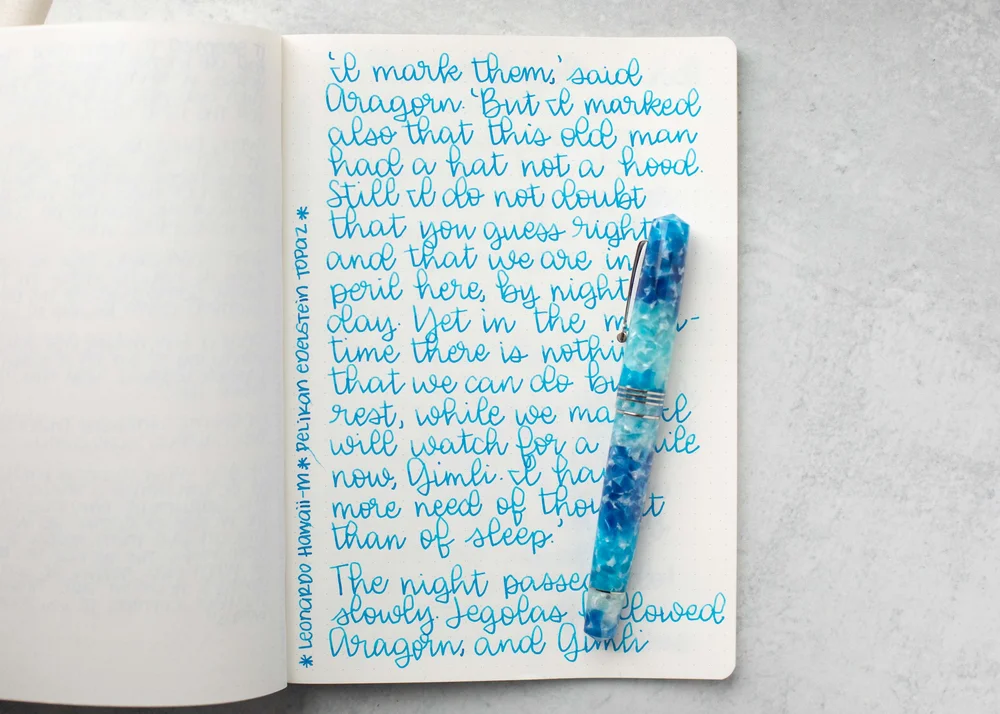 'I mark them,' said
Aragorn. 'But I marked
also that this old man
had a hat not a hood.
Still I do not doubt
that you guess right
and that we are in
peril here, by night
day. Yet in the
time there is
that we can do
rest, while we
will watch for a
now, Gimli. I
more need of
than of sleep.'
The night
slowly. Legolas
Aragorn, and Gimli
* Leonardo Hawaii-M * Pelikan Edelstein Topaz *